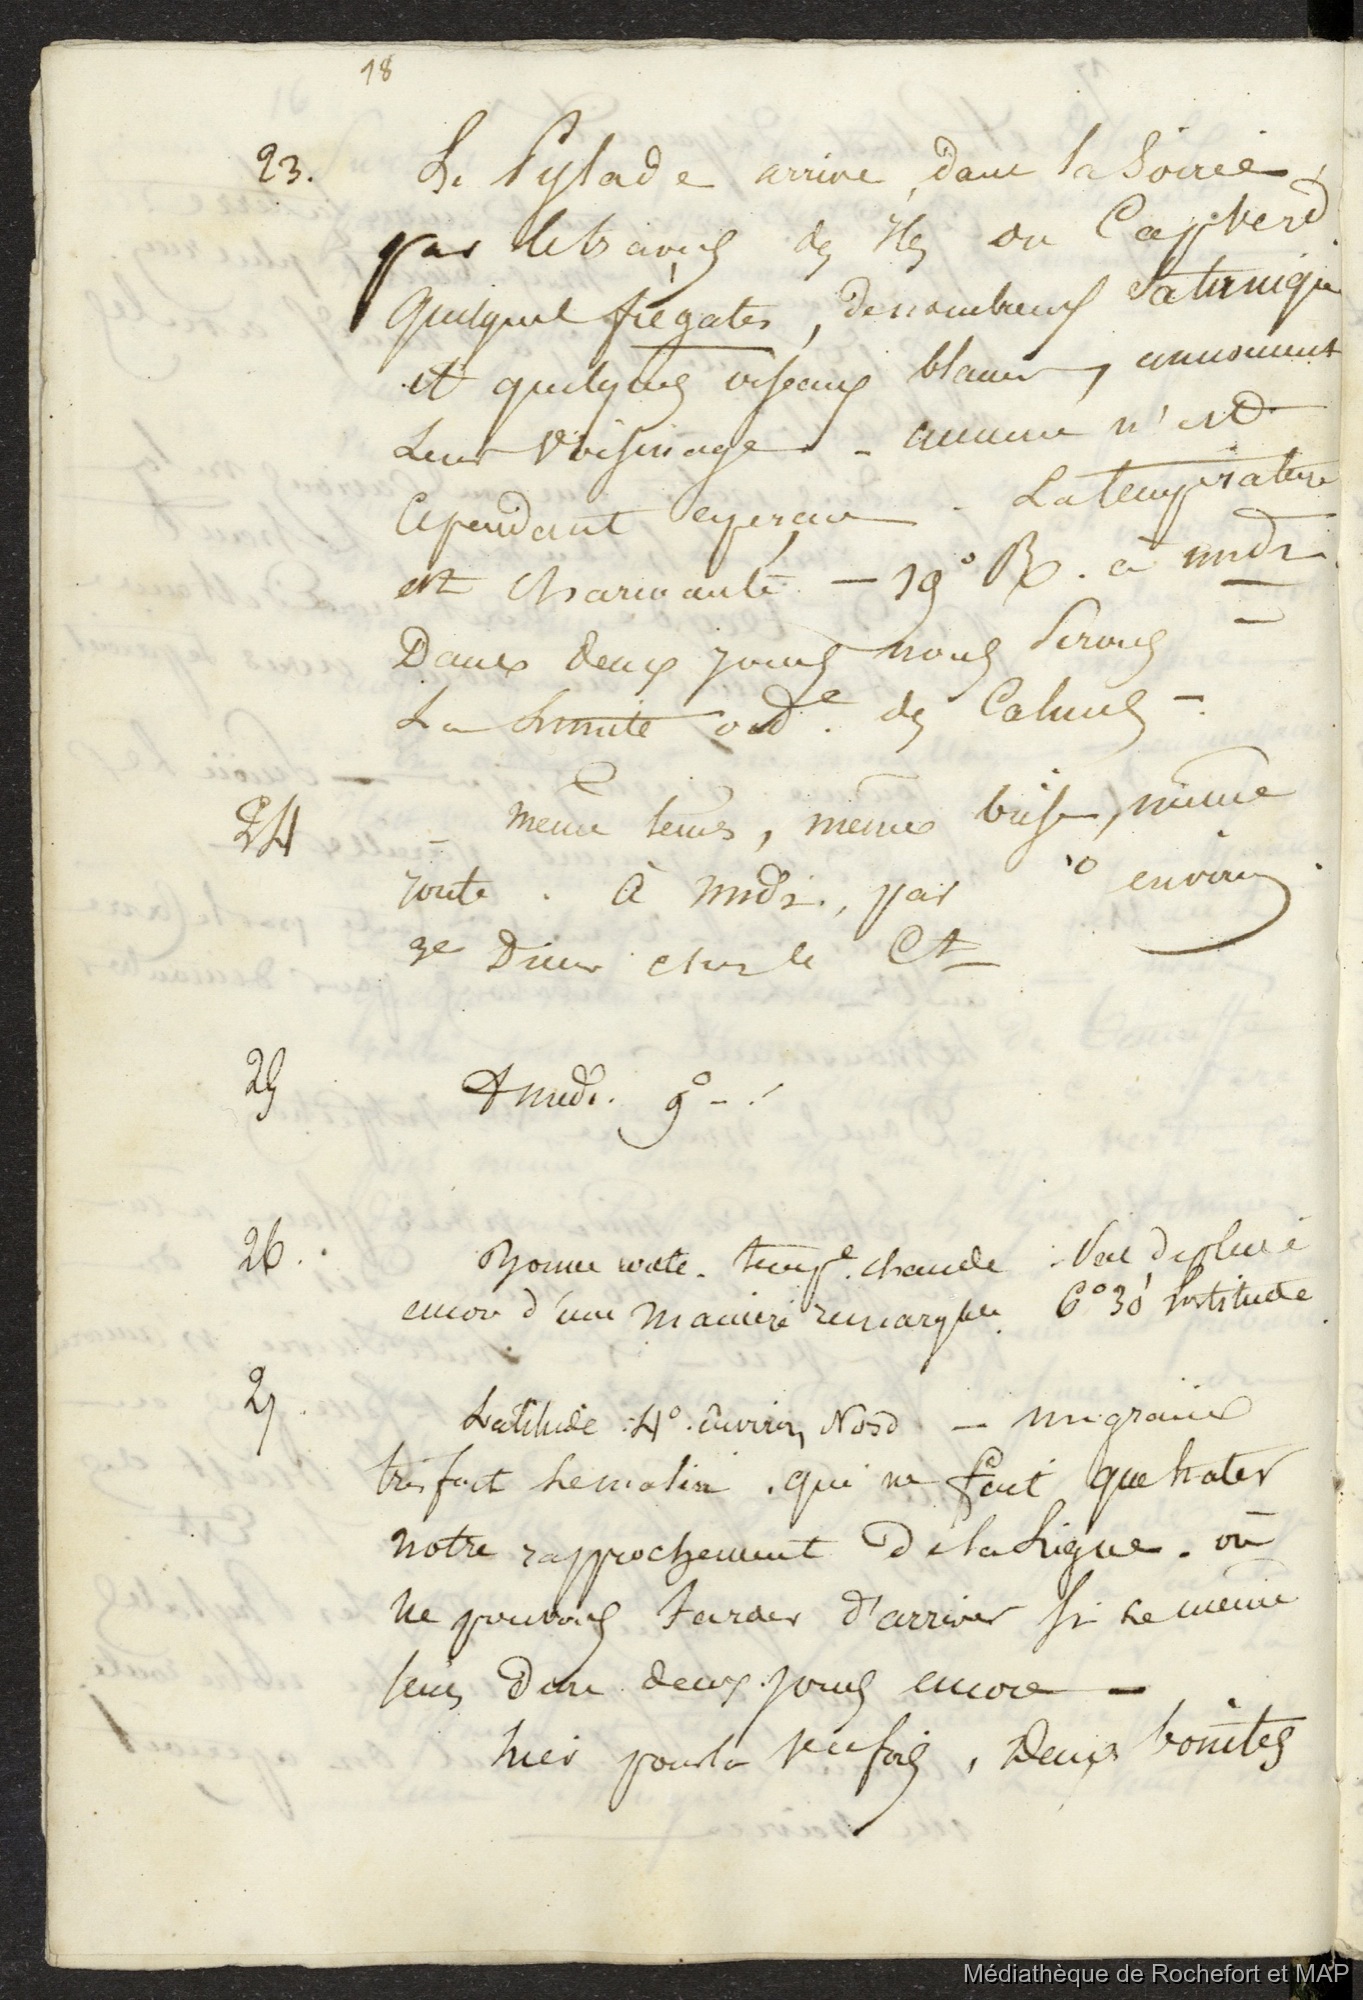 18
23. Le Pylade arrive, dans la Soirée,
par le travers des Iles du Cap Verd.
quelques frégates, de nombreux
et quelques oiseaux blancs, annoncent
Leur Voisinage - aucune n'est
Cependant aperçue - La température
est charmante - 19° R. à midi
Dans deux jours nous serons
La Limite ord.e des Calmes -
24 - même tems, même brise, même
route. à midi, par ° environ
3e Diner chez le Ct
25 A midi. 9° - '
26. Bonne route. temp.e chaude.
encore d'une maniere remarqble. 6° 30' Latitude
27. Latitude 4° environ Nord - migraine
très fort le matin. qui ne fait que hater
notre rapprochement de la Ligne. où
ne pouvons tarder d'arriver si le même
tems dure deux jours encore -
hier pour la 1re fois, Deux bonites
Médiathèque de Rochefort et MAP